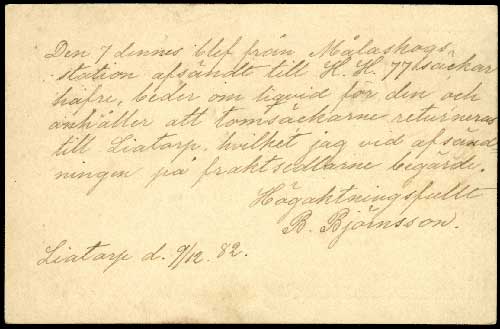 Den 7 dennes blef från Målaskogs
station afsändt till H. H. 77 säckar
hafre, beder om liqvid för den och
anhåller att tomsäckarne returneras
till Liatorp, hvilket jag vid afsänd-
ningen på fraktsedlarne begärde.
Högaktningsfullt
B. Björnsson.
Liatorp d. 9/12. 82.